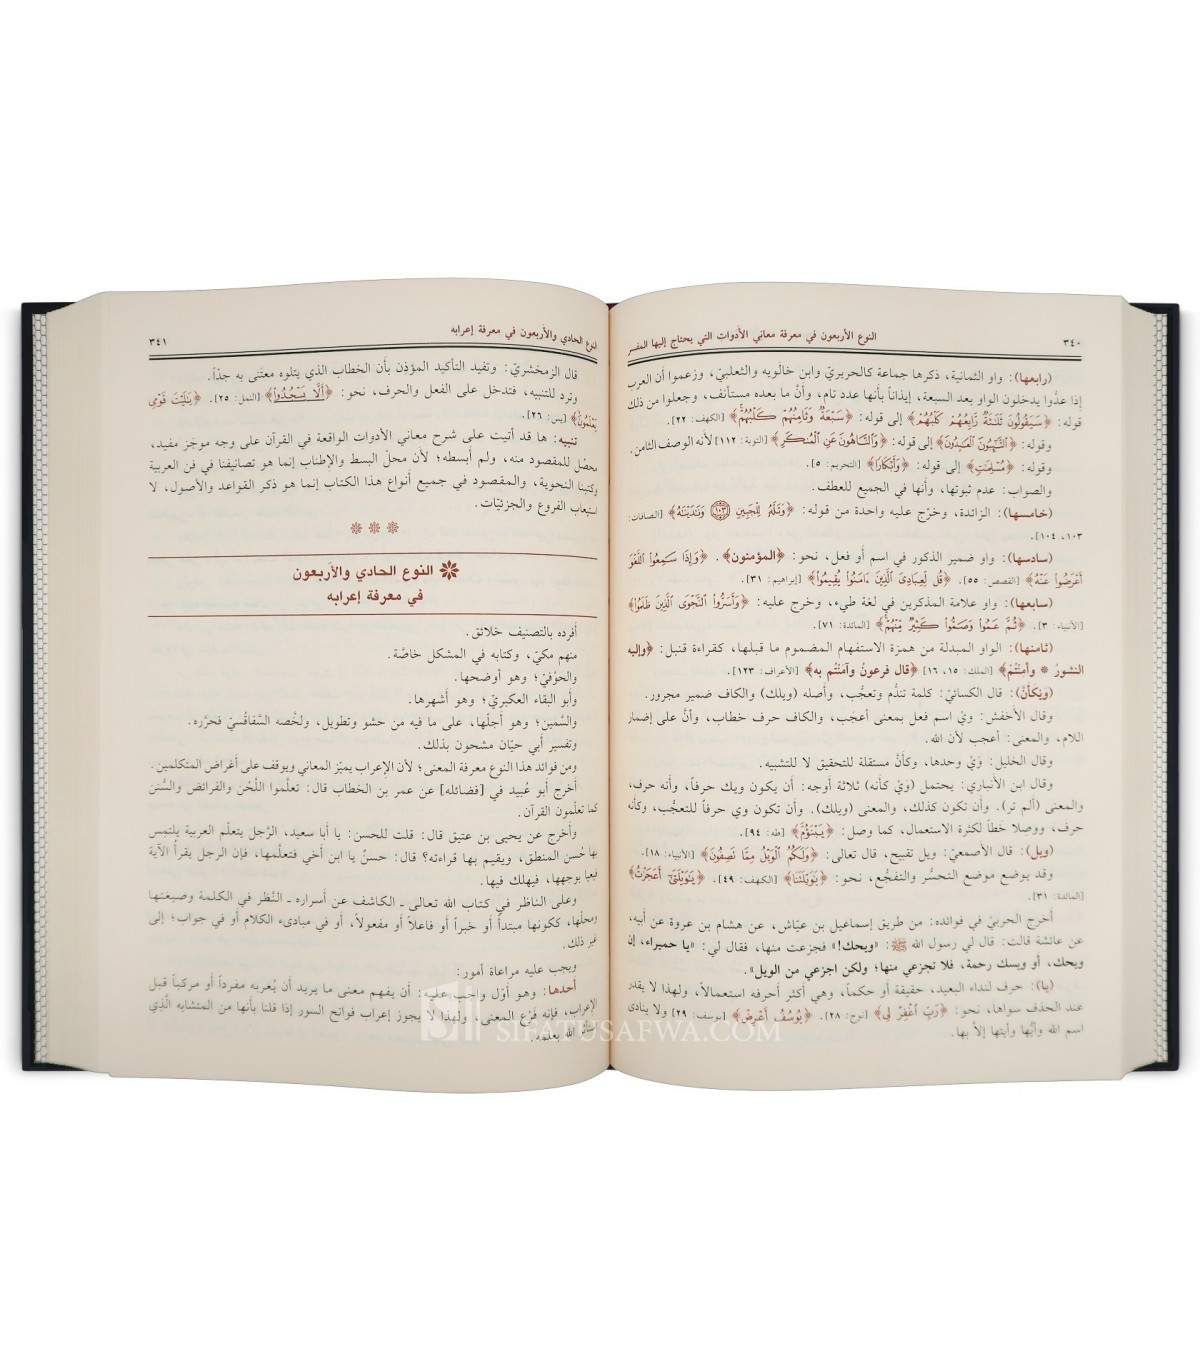 ٣٤٠
النوع الأربعون في معرفة معاني الأدوات التي يحتاج إليها المفسر
(رابعها): واو الثمانية، ذكرها جماعة كالحريري وابن خالويه والثعلبيّ، وزعموا أن العرب
إذا عدُّوا يدخلون الواو بعد السبعة، إيذاناً بأنها عدد تام، وأنَّ ما بعده مستأنف، وجعلوا من ذلك
قوله: ﴿سَيَقُولُونَ ثَلَٰثَةٌ رَّابِعُهُمْ كَلْبُهُمْ﴾ إلى قوله: ﴿سَبْعَةٌ وَثَامِنُهُمْ كَلْبُهُمْ﴾ [الكهف: ٢٢].
وقوله: ﴿ٱلتَّٰٓئِبُونَ ٱلْعَٰبِدُونَ﴾ إلى قوله: ﴿وَٱلنَّاهُونَ عَنِ ٱلْمُنكَرِ﴾ [التوبة: ١١٢] لأنه الوصف الثامن.
وقوله: ﴿مُسْلِمَٰتٍ﴾ إلى قوله: ﴿وَأَبْكَارًا﴾ [التحريم: ٥].
والصواب: عدم ثبوتها، وأنها في الجميع للعطف.
(خامسها): الزائدة، وخرّج عليه واحدة من قوله: ﴿وَتَلَّهُ لِلْجَبِينِ ١٠٣ وَنَٰدَيْنَٰهُ﴾ [الصافات:
١٠٣، ١٠٤].
(سادسها): واو ضمير الذكور في اسم أو فعل، نحو: ﴿المؤمنون﴾. ﴿وَإِذَا سَمِعُوا۟ ٱللَّغْوَ
أَعْرَضُوا۟ عَنْهُ﴾ [القصص: ٥٥]. ﴿قُل لِّعِبَادِىَ ٱلَّذِينَ ءَامَنُوا۟ يُقِيمُوا۟﴾ [إبراهيم: ٣١].
(سابعها): واو علامة المذكرين في لغة طيء، وخرج عليه: ﴿وَأَسَرُّوا۟ ٱلنَّجْوَى ٱلَّذِينَ ظَلَمُوا۟﴾
[الأنبياء: ٣]. ﴿ثُمَّ عَمُوا۟ وَصَمُّوا۟ كَثِيرٌ مِّنْهُمْ﴾ [المائدة: ٧١].
(ثامنها): الواو المبدلة من همزة الاستفهام المضموم ما قبلها، كقراءة قنبل: ﴿وإليه
النشورُ * وأمِنتُمْ﴾ [الملك: ١٥، ١٦] ﴿قال فرعونُ وآمنتُم به﴾ [الأعراف: ١٢٣].
(ويْكأنَّ): قال الكسائيّ: كلمة تندُّم وتعجُّب، وأصله (ويلك) والكاف ضمير مجرور.
وقال الأخفش: ويْ اسم فعل بمعنى أعجب، والكاف حرف خطاب، وأنَّ على إضمار
اللام، والمعنى: أعجب لأن الله.
وقال الخليل: وَيْ وحدها، وكأنَّ مستقلة للتحقيق لا للتشبيه.
وقال ابن الأنباري: يحتمل (وَيْ كأنه) ثلاثة أوجه: أن يكون ويك حرفاً، وأنه حرف،
والمعنى (ألم تر). وأن تكون كذلك، والمعنى (ويلك). وأن تكون وي حرفاً للتعجُّب، وكأنه
حرف، ووصلا خطاً لكثرة الاستعمال، كما وصل: ﴿يَبْنَؤُمَّ﴾ [طه: ٩٤].
(ويل): قال الأصمعيّ: ويل تقبيح، قال تعالى: ﴿وَلَكُمُ ٱلْوَيْلُ مِمَّا تَصِفُونَ﴾ [الأنبياء: ١٨].
وقد يوضع موضع التحسُّر والتفجُّع، نحو: ﴿يَٰوَيْلَتَنَا﴾ [الكهف: ٤٩]. ﴿يَٰوَيْلَتَىٰٓ أَعَجَزْتُ﴾
[المائدة: ٣١].
أخرج الحربيّ في فوائده: من طريق إسماعيل بن عيّاش، عن هشام بن عروة عن أبيه،
عن عائشة قالت: قال لي رسول الله ﷺ: «ويحك!» فجزعت منها، فقال لي: «يا حميراء، إن
ويحك، أو ويسك رحمة، فلا تجزعي منها؛ ولكن اجزعي من الويل».
(يا): حرف لنداء البعيد، حقيقة أو حكماً، وهي أكثر أحرفه استعمالاً، ولهذا لا يقدر
عند الحذف سواها، نحو: ﴿رَبِّ ٱغْفِرْ لِى﴾ [نوح: ٢٨]. ﴿يُوسُفُ أَعْرِضْ﴾ [يوسف: ٢٩] ولا ينادى
اسم الله وأيُّها وأيتها إلاَّ بها.
النوع الحادي والأربعون في معرفة إعرابه
٣٤١
قال الزمخشريّ: وتفيد التأكيد المؤذِن بأن الخطاب الذي يتلوه معتنى به جدّاً.
وترد للتنبيه، فتدخل على الفعل والحرف، نحو: ﴿أَلَّا يَسْجُدُوا۟﴾ [النمل: ٢٥]. ﴿يَٰلَيْتَ قَوْمِى
يَعْلَمُونَ﴾ [يس: ٢٦].
تنبيه: ها قد أتيت على شرح معاني الأدوات الواقعة في القرآن على وجه موجَز مفيد،
محصِّل للمقصود منه، ولم أبسطه؛ لأن محلّ البسط والإطناب إنما هو تصانيفنا في فن العربية
وكتبنا النحوية، والمقصود في جميع أنواع هذا الكتاب إنما هو ذكر القواعد والأصول، لا
استيعاب الفروع والجزئيّات.
* * *
النوع الحادي والأربعون
في معرفة إعرابه
أفرده بالتصنيف خلائق.
منهم مكيّ، وكتابه في المشكل خاصَّة.
والحوْفيّ؛ وهو أوضحها.
وأبو البقاء العكبريّ؛ وهو أشهرها.
والسَّمين؛ وهو أجلّها، على ما فيه من حشو وتطويل، ولخّصه السَّفاقُسيّ فحرَّره.
وتفسير أبي حيّان مشحون بذلك.
ومن فوائد هذا النوع معرفة المعنى؛ لأن الإعراب يميّز المعاني ويوقف على أغراض المتكلمين.
أخرج أبو عُبيد في [فضائله] عن عمر بن الخطاب قال: تعلّموا اللَّحْن والفرائض والسُّنن
كما تعلَّمون القرآن.
وأخرج عن يحيى بن عتيق قال: قلت للحسن: يا أبا سعيد، الرَّجل يتعلّم العربية يلتمس
بها حُسن المنطق، ويقيم بها قراءته؟ قال: حسنٌ يا ابن أخي فتعلَّمها، فإن الرجل يقرأ الآية
فيعيا بوجهها، فيهلك فيها.
وعلى الناظر في كتاب الله تعالى ـ الكاشف عن أسراره ـ النَّظر في الكلمة وصيغتها
ومحلّها، ككونها مبتدأ أو خبراً أو فاعلاً أو مفعولاً، أو في مبادىء الكلام أو في جواب؛ إلى
غير ذلك.
ويجب عليه مراعاة أمور:
أحدها: وهو أوّل واجب عليه: أن يفهم معنى ما يريد أن يُعربه مفرداً أو مركباً قبل
الإعراب، فإنه فرْع المعنى؛ ولهذا لا يجوز إعراب فواتح السور إذا قلنا بأنها من المتشابه الَّذي
استأثر الله بعلمه.
SIFATUSAFWA.COM